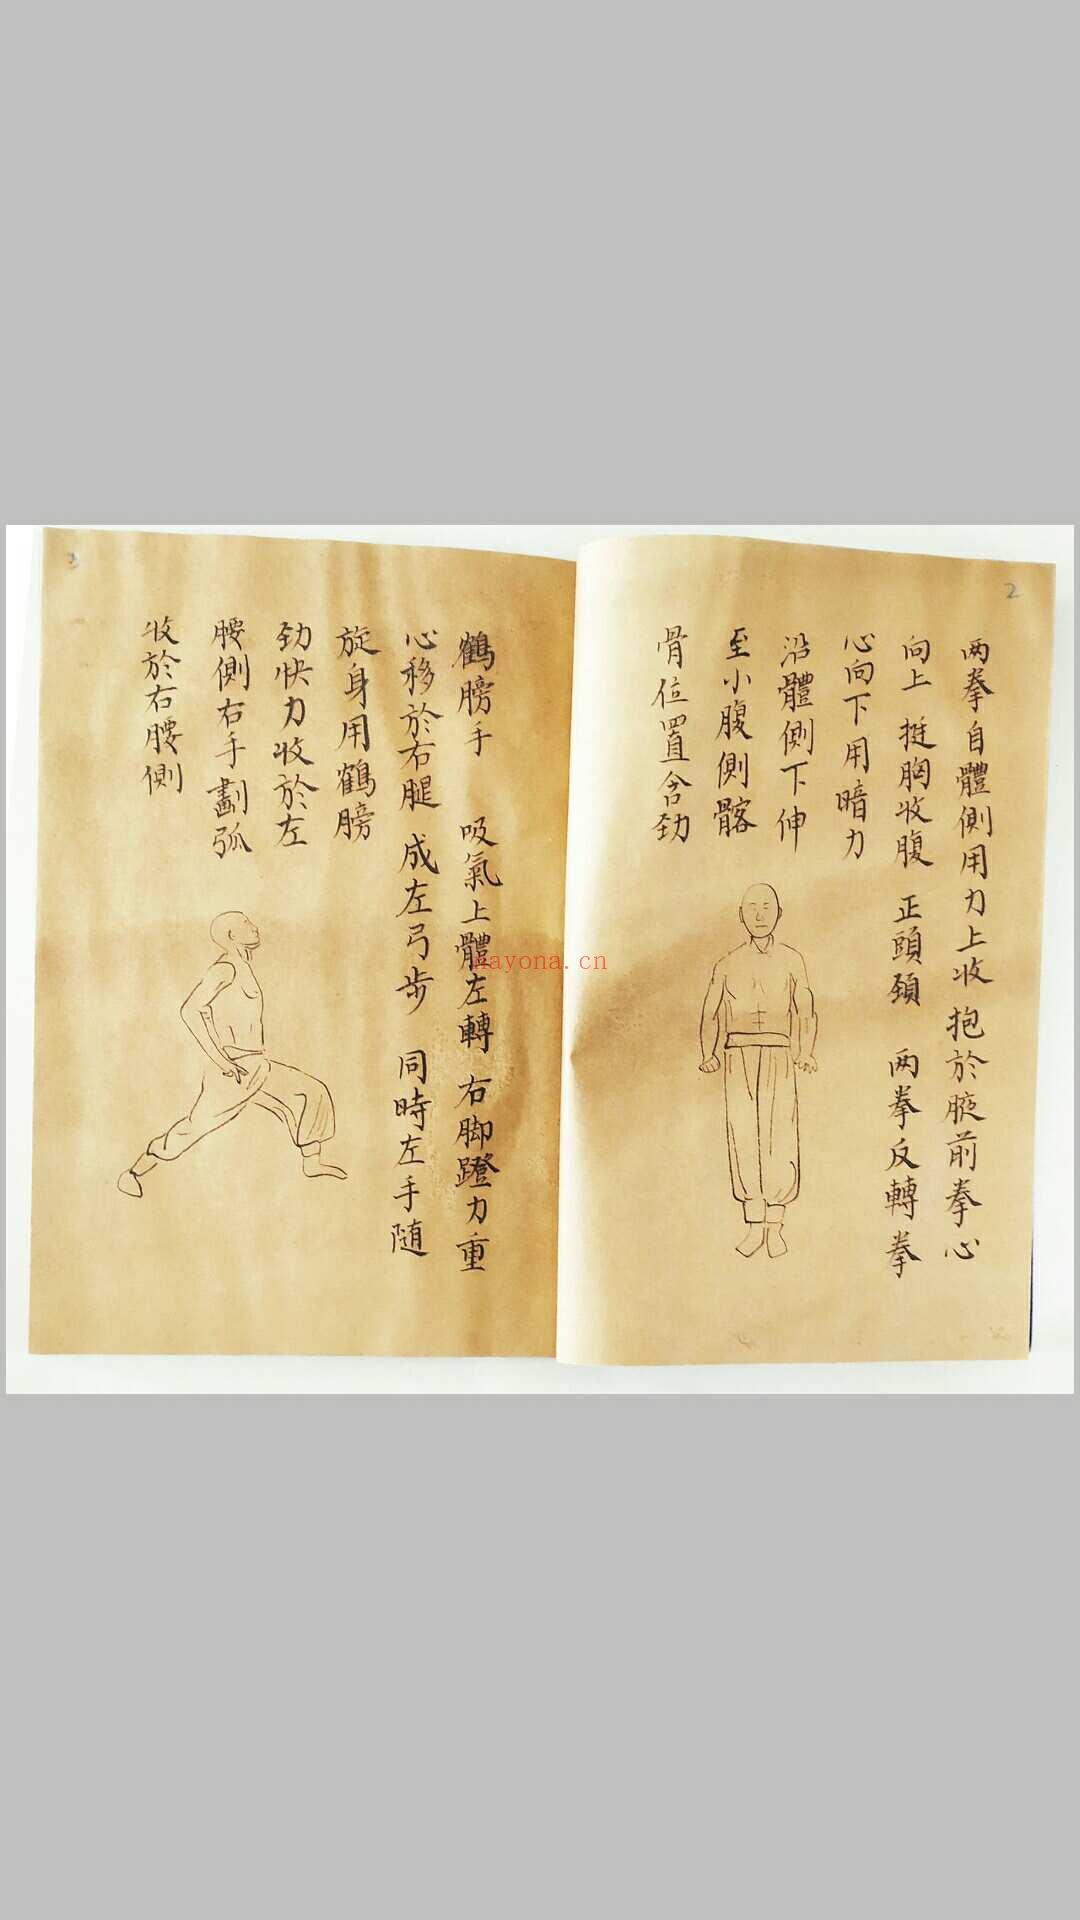 2
两拳自體側用力上收 抱於腋前拳心
向上 挺胸收腹 正頭頸 两拳反轉拳
心向下用暗力
沿體側下伸
至小腹側髂
骨位置含劲
3
鶴膀手 吸氣上體左轉 右脚蹬力重
心移於右腿 成左弓步 同時左手随
旋身用鶴膀
劲快力收於左
腰側右手劃弧
收於右腰側
nayona.cn